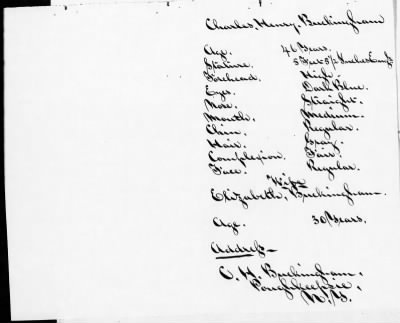 Charles Henry Buckingham
Age. 46 Years.
Stature. 5 Feet 5 1/2 Inches Eng.
Forehead. High.
Eyes. Dark Blue.
Nose. Straight.
Mouth. Medium.
Chin. Regular.
Hair. Gray.
Complexion. Fair.
Face. Regular.
Wife
Elizabeth, Buckingham.
Age. 30 Years.
Address—
C. H. Buckingham,
Poughkeepsie,
N.Y.